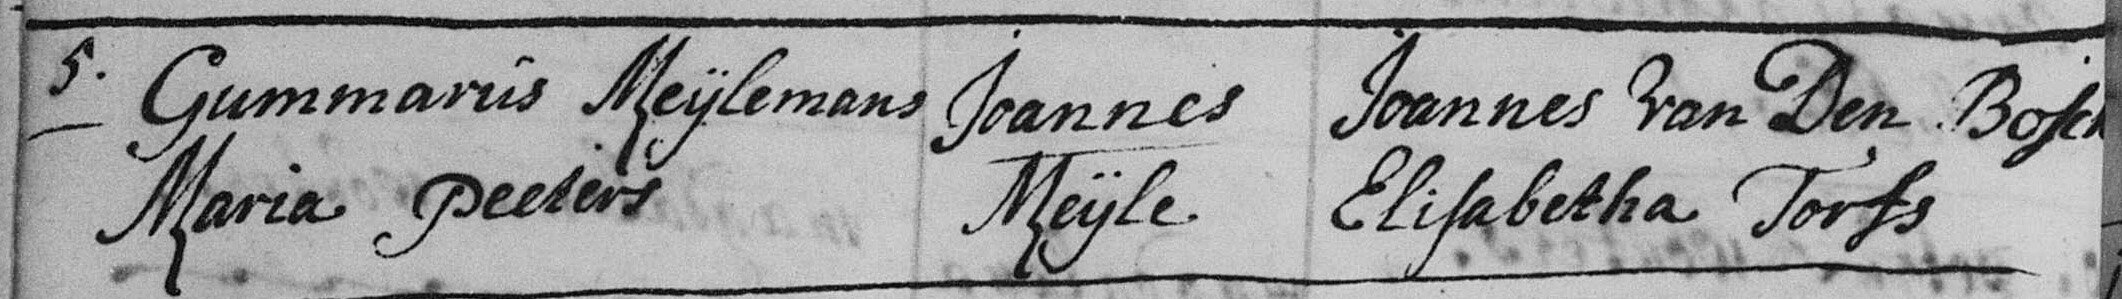 5. Gummarus Meÿlemans Joannes Joannes Van Den Bosch
Maria Peeters Meÿle Elisabetha Torfs